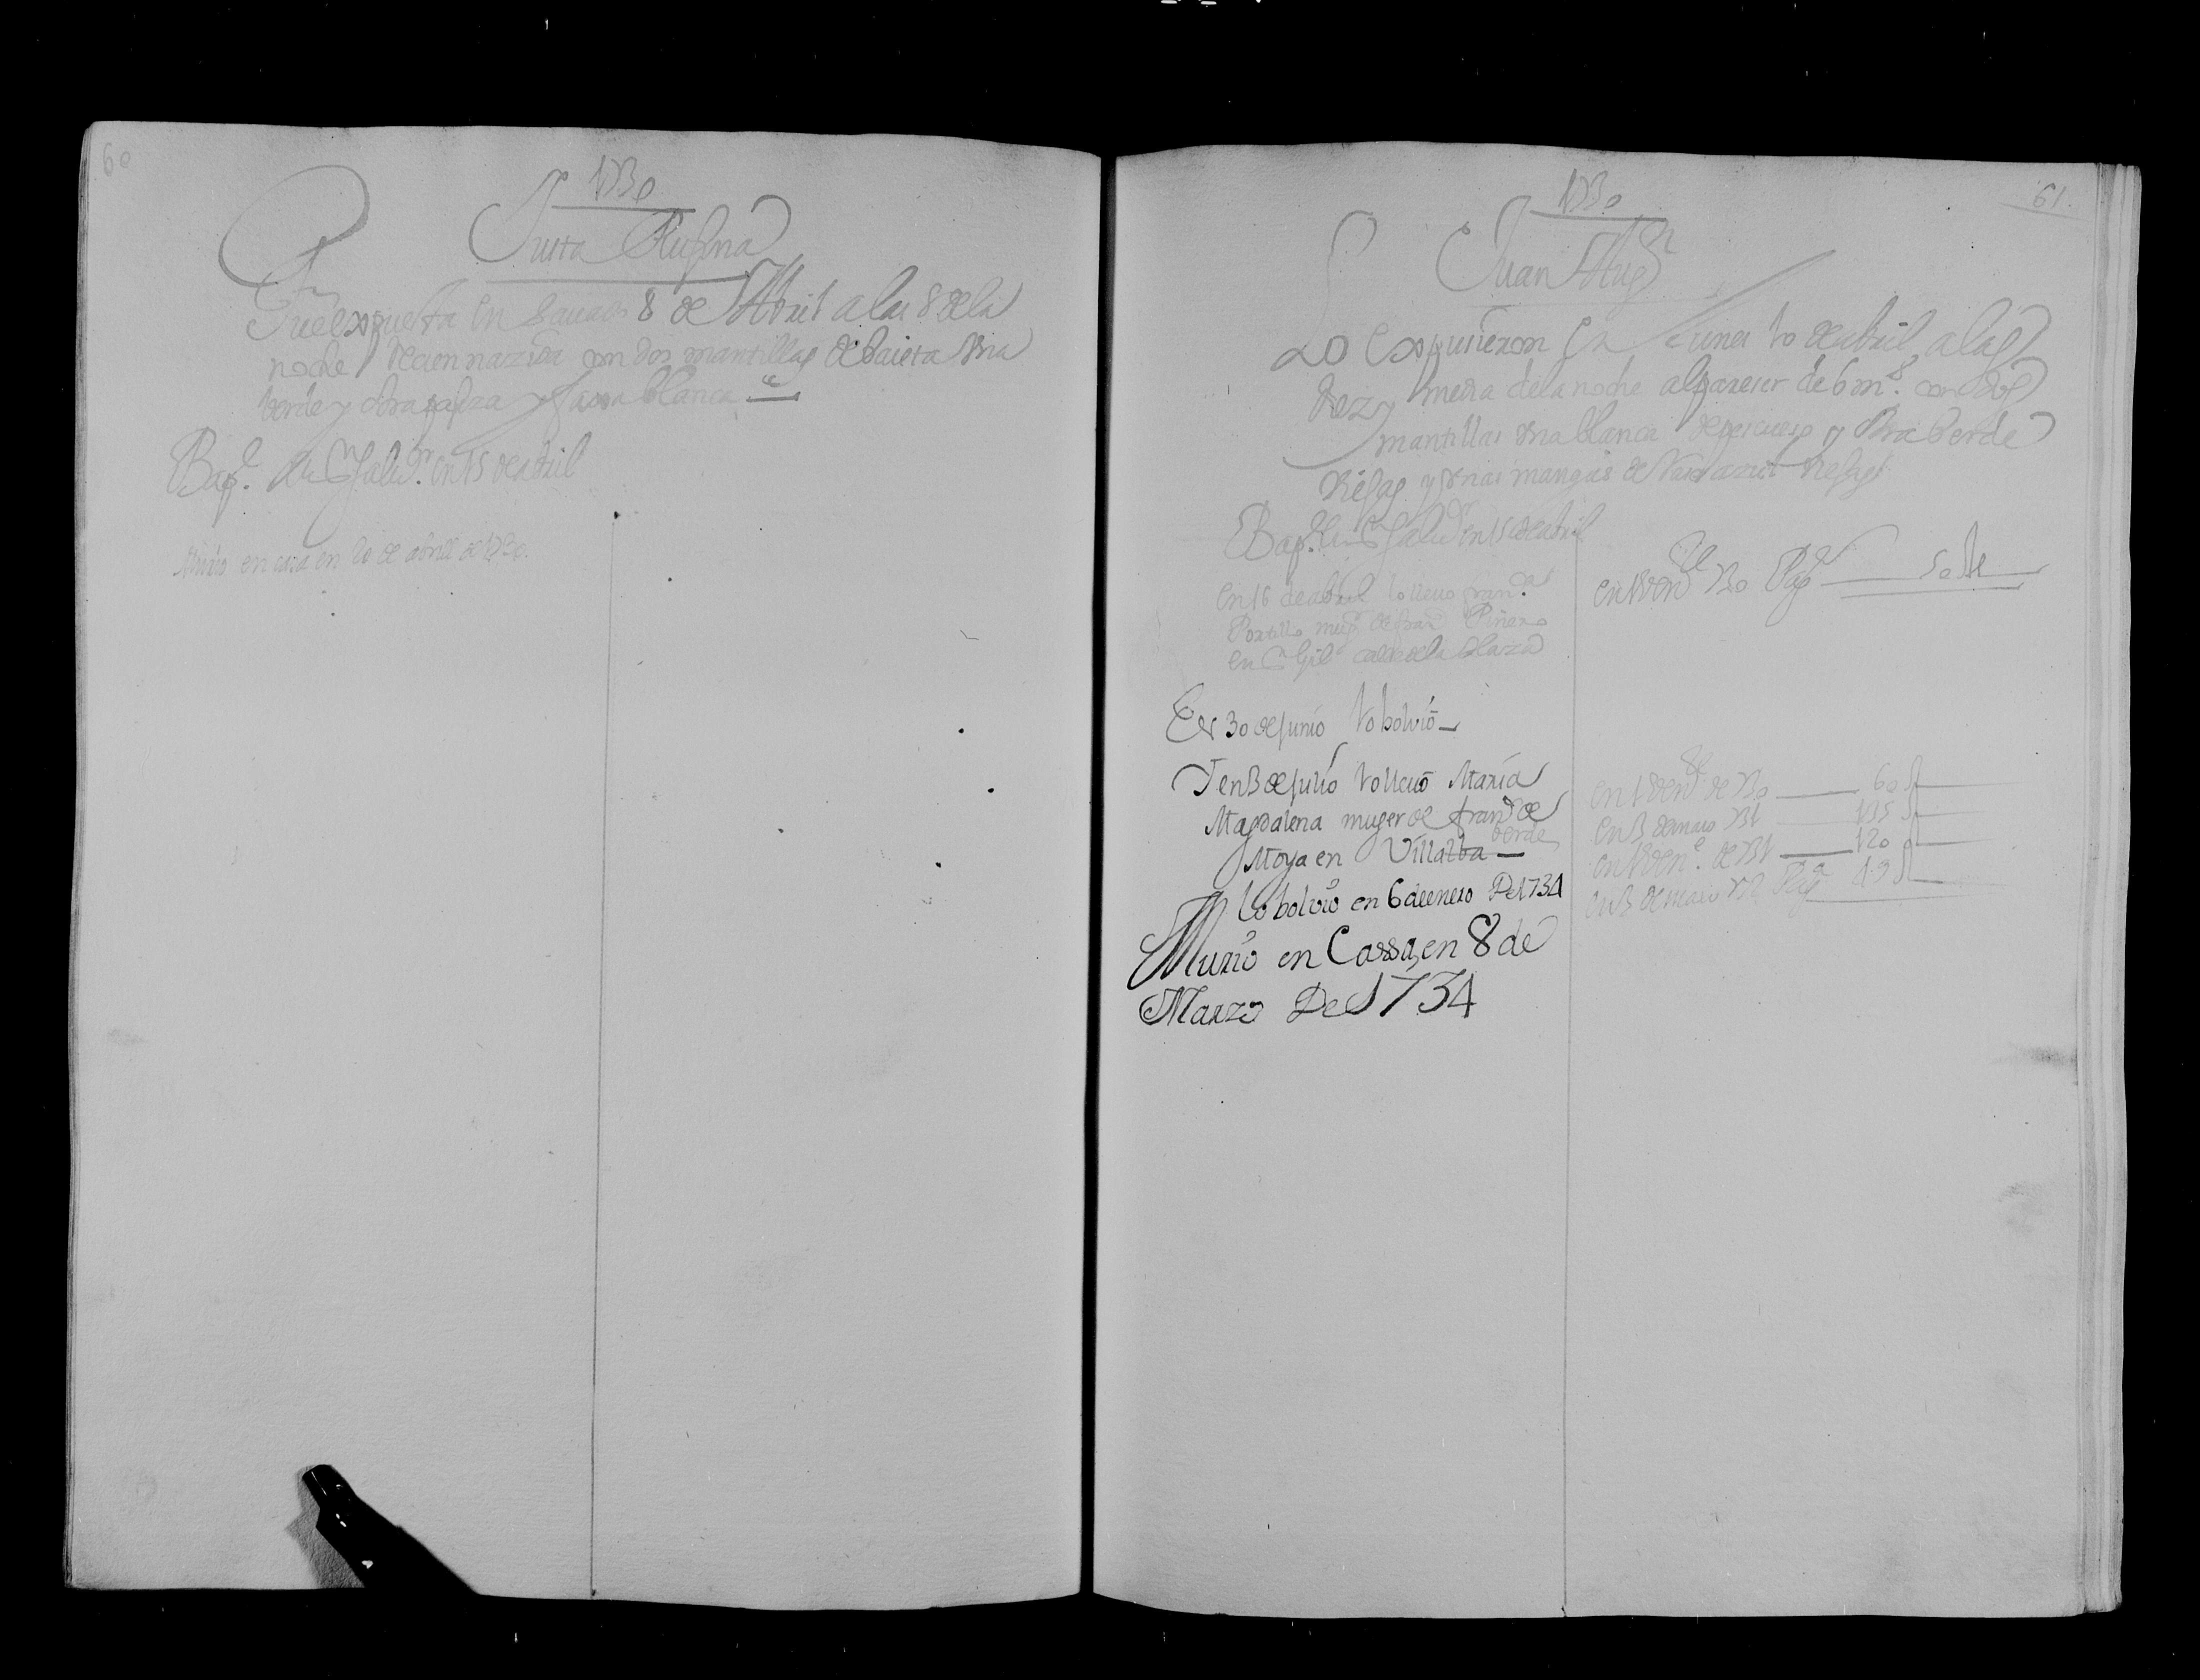 60
1730
Justa Rufina
Fue expuesta en savado 8 de Abril a las 8 de la
noche recien nazida con dos mantillas de baieta Una
berde y otra parza y faxa blanca
Bapᵈ. en Sⁿ Salvᵈʳ. en 15 de abril
Murio en casa en 20 de abrill de 1730.
61.
1730
Juan Augⁿ
Lo Expusieron En Lunes 10 de abril a las
diez y media de la noche al pareser de 6 mˢ. con dos
mantillas Una blanca de y otra berde
Viejas y Unas mangas de azul Viejas
Bapᵈ. en Sⁿ Salvᵈʳ en 15 de abril
en 16 de abril lo llevo franᶜᵃ
Portillo mugʳ de franᶜᵒ Piñero
en Sⁿ Gil calle de la Plaza
En 30 de Junio lo bolvió
Y en 3 de Julio lo llevó Maria
Magdalena muger de franᶜᵒ de
Moya en Villalba verde
lo bolvio en 6 de enero De 1734
Murio en Cassa, en 8 de
Marzo De 1734
en 1 de 730 Pagᵈᵒ
en 1 de de 730 60
en 3 de maio 731 135
en 1 de de 731 120
en 3 de maio 732 Pagᵈᵒ 49